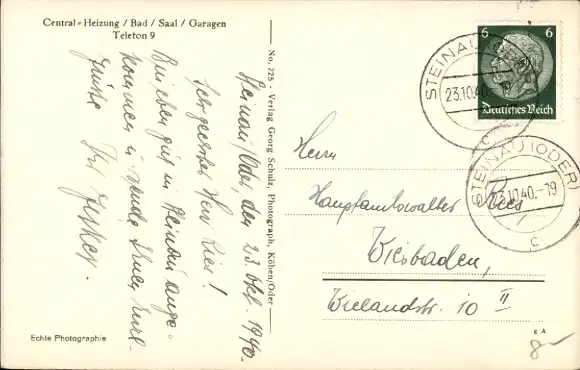 Central-Heizung / Bad / Saal / Garagen
Telefon 9
Steinau/Oder, den 23. Okt. 1940.
Sehr geehrter Herr Ries!
Bin eben gut in Steinau ange-
kommen u. sende Ihnen viel-
Grüße
Ihr
No. 225 - Verlag Georg Schulz, Photograph, Köben/Oder
Echte Photographie
6 6
Deutsches Reich
STEINAU (ODER)
23.10.40.
c
STEINAU (ODER)
23.10.40.-19
c
Herrn
Hauptamtswalter Ries
Wiesbaden,
Wielandstr. 10 II
K A
8